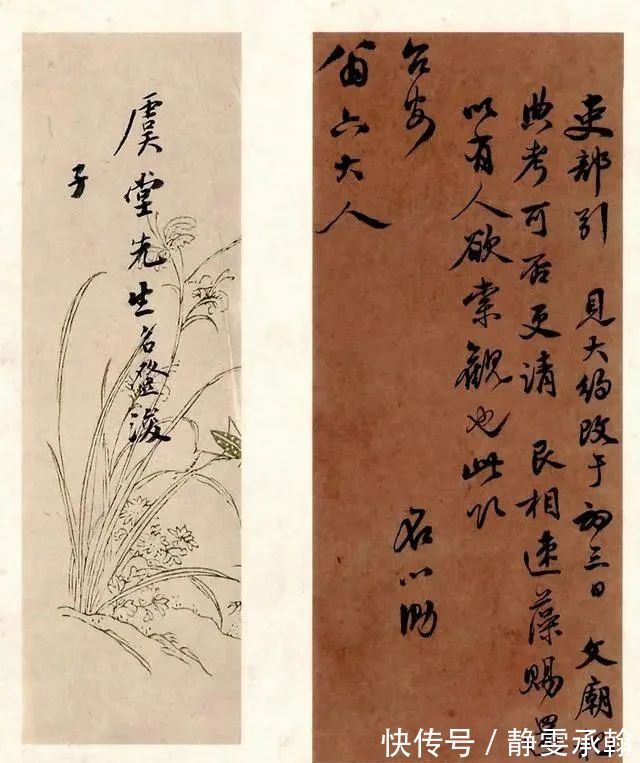 吏部引 見大約改于初三日 文廟祀
典考可否更请 艮相速藻赐還
以有人欲索觀也此叩
台安
六大人
名心泐
虞堂先生名
子
快传号 / 静雯承翰